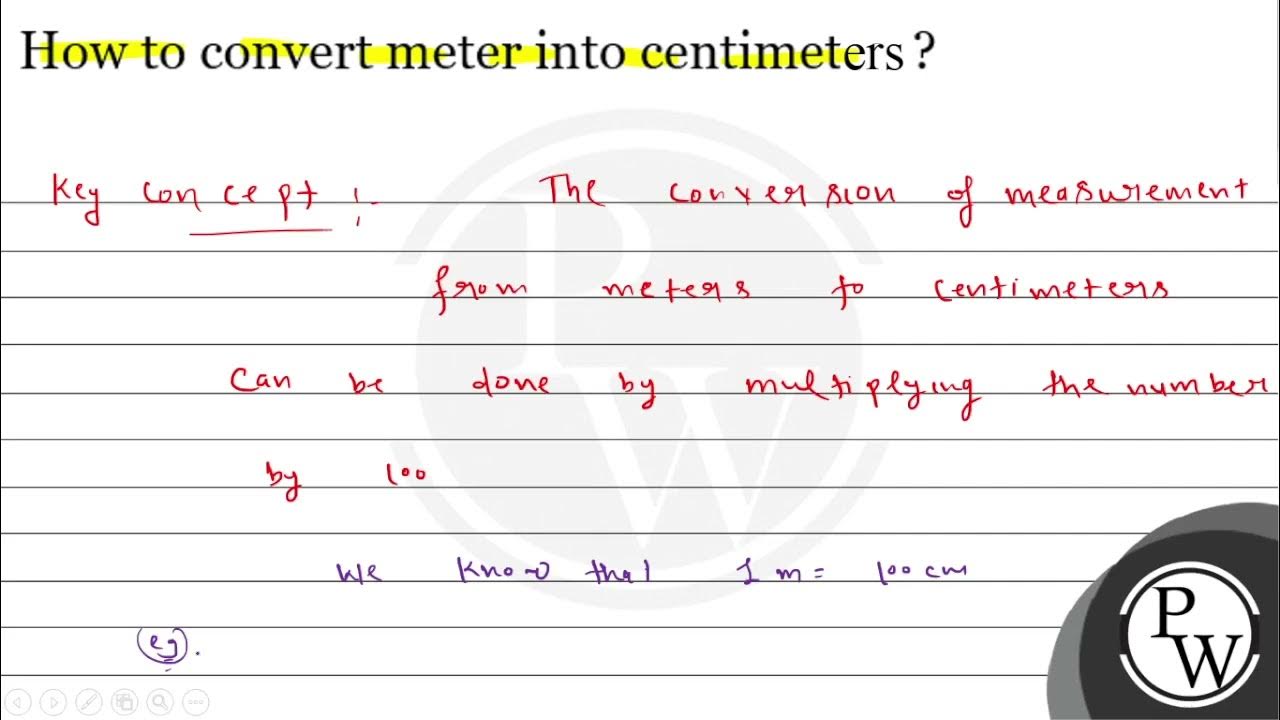 How to convert meter into centimeters ?
Key concept :- The conversion of measurement
from meters to centimeters
Can be done by multiplying the number
by 100
We know that 1 m = 100 cm
eg.
PW
PW